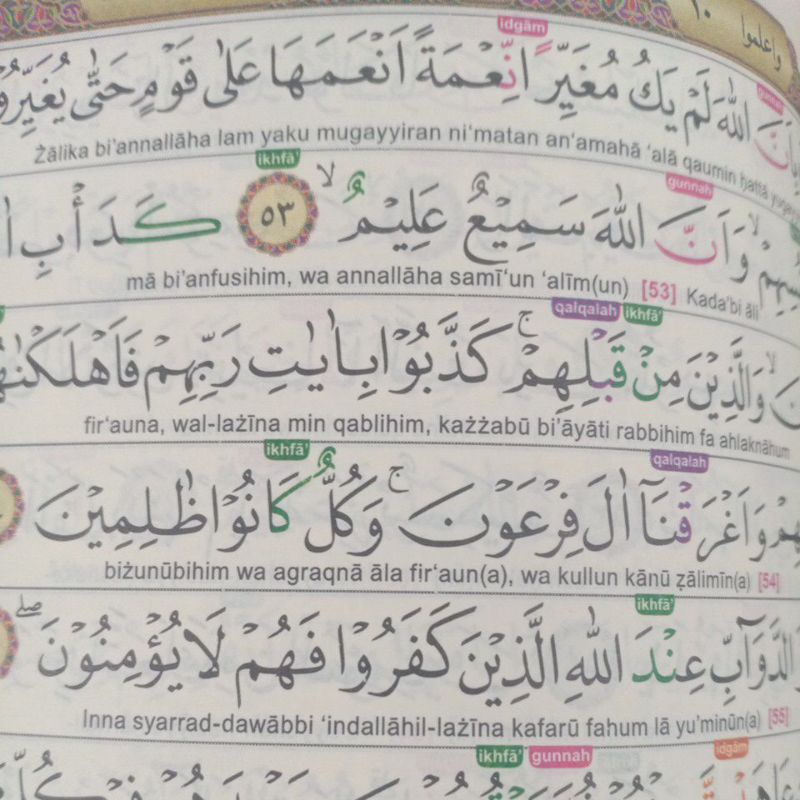 واعلموا ١٠
idgām
gunnah
اللّٰهَ لَمْ يَكُ مُغَيِّرًا نِّعْمَةً اَنْعَمَهَا عَلٰى قَوْمٍ حَتّٰى يُغَيِّرُوْا
Żālika bi'annallāha lam yaku mugayyiran ni'matan an'amahā 'alā qaumin ḥattā
ikhfā'
gunnah
وَاَنَّ اللّٰهَ سَمِيْعٌ عَلِيْمٌۙ ٥٣ كَدَأْبِ
mā bi'anfusihim, wa annallāha samī'un 'alīm(un) [53] Kada'bi āli
qalqalah ikhfā'
وَالَّذِيْنَ مِنْ قَبْلِهِمْۚ كَذَّبُوْا بِاٰيٰتِ رَبِّهِمْ فَاَهْلَكْنٰهُمْ
fir'auna, wal-lażīna min qablihim, każżabū bi'āyāti rabbihim fa ahlaknāhum
ikhfā'
qalqalah
وَاَغْرَقْنَآ اٰلَ فِرْعَوْنَۚ وَكُلٌّ كَانُوْا ظٰلِمِيْنَ
biżunūbihim wa agraqnā āla fir'aun(a), wa kullun kānū ẓālimīn(a) [54]
ikhfā'
الدَّوَاۤبِّ عِنْدَ اللّٰهِ الَّذِيْنَ كَفَرُوْا فَهُمْ لَا يُؤْمِنُوْنَۖ
Inna syarrad-dawābbi 'indallāhil-lażīna kafarū fahum lā yu'minūn(a) [55]
ikhfā' gunnah
idgām